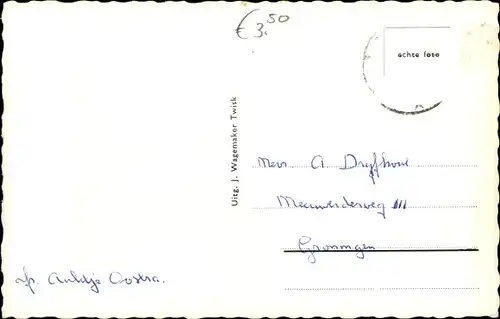 € 3.50
echte foto
Uitg. J. Wagemaker Twisk
Mevr. A Dryfhout
Meeuwerderweg 111
Groningen
Oostra.